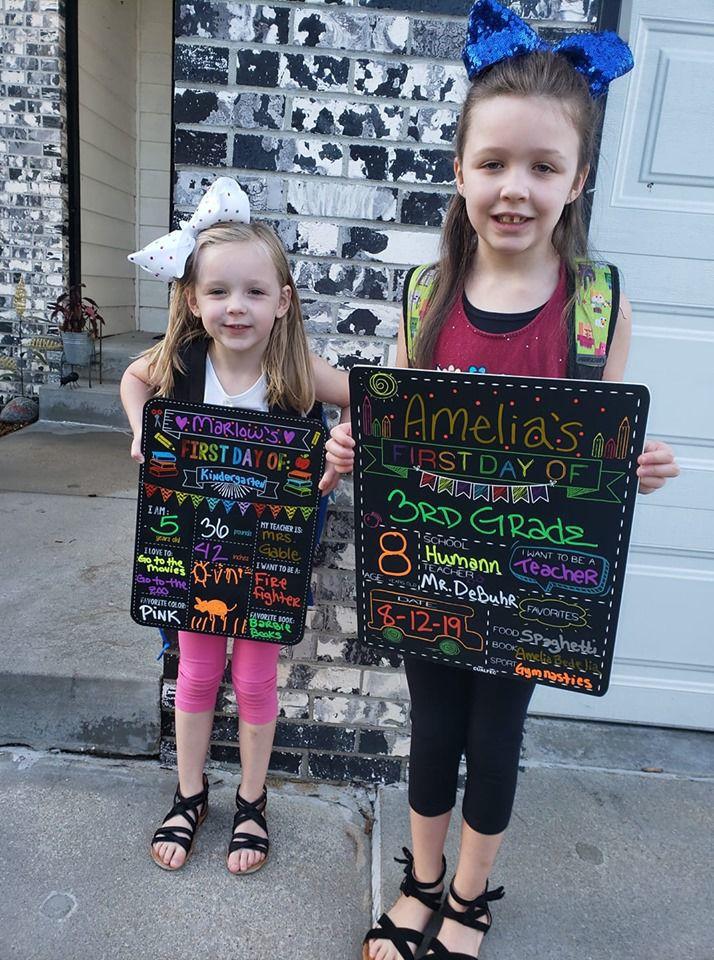 Marlow's
FIRST DAY OF:
Kindergarten
I AM:
5
years old
36 pounds
42 inches
MY TEACHER IS:
mrs
Gable
I LOVE TO:
Go to the
movies
Go to the
zoo
I WANT TO BE A:
Fire
fighter
FAVORITE COLOR:
PINK
FAVORITE BOOK:
Barbie
Books
Amelia's
FIRST DAY OF
3RD GRADE
8
AGE
YEARS OLD
SCHOOL
Humann
TEACHER
Mr. DeBuhr
I WANT TO BE A
Teacher
DATE
8-12-19
FAVORITES
FOOD Spaghetti
BOOK Amelia Bedelia
SPORT Gymnastics